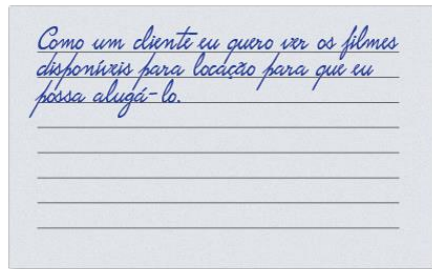 Como um cliente eu quero ver os filmes
disponíveis para locação para que eu
possa alugá-lo.